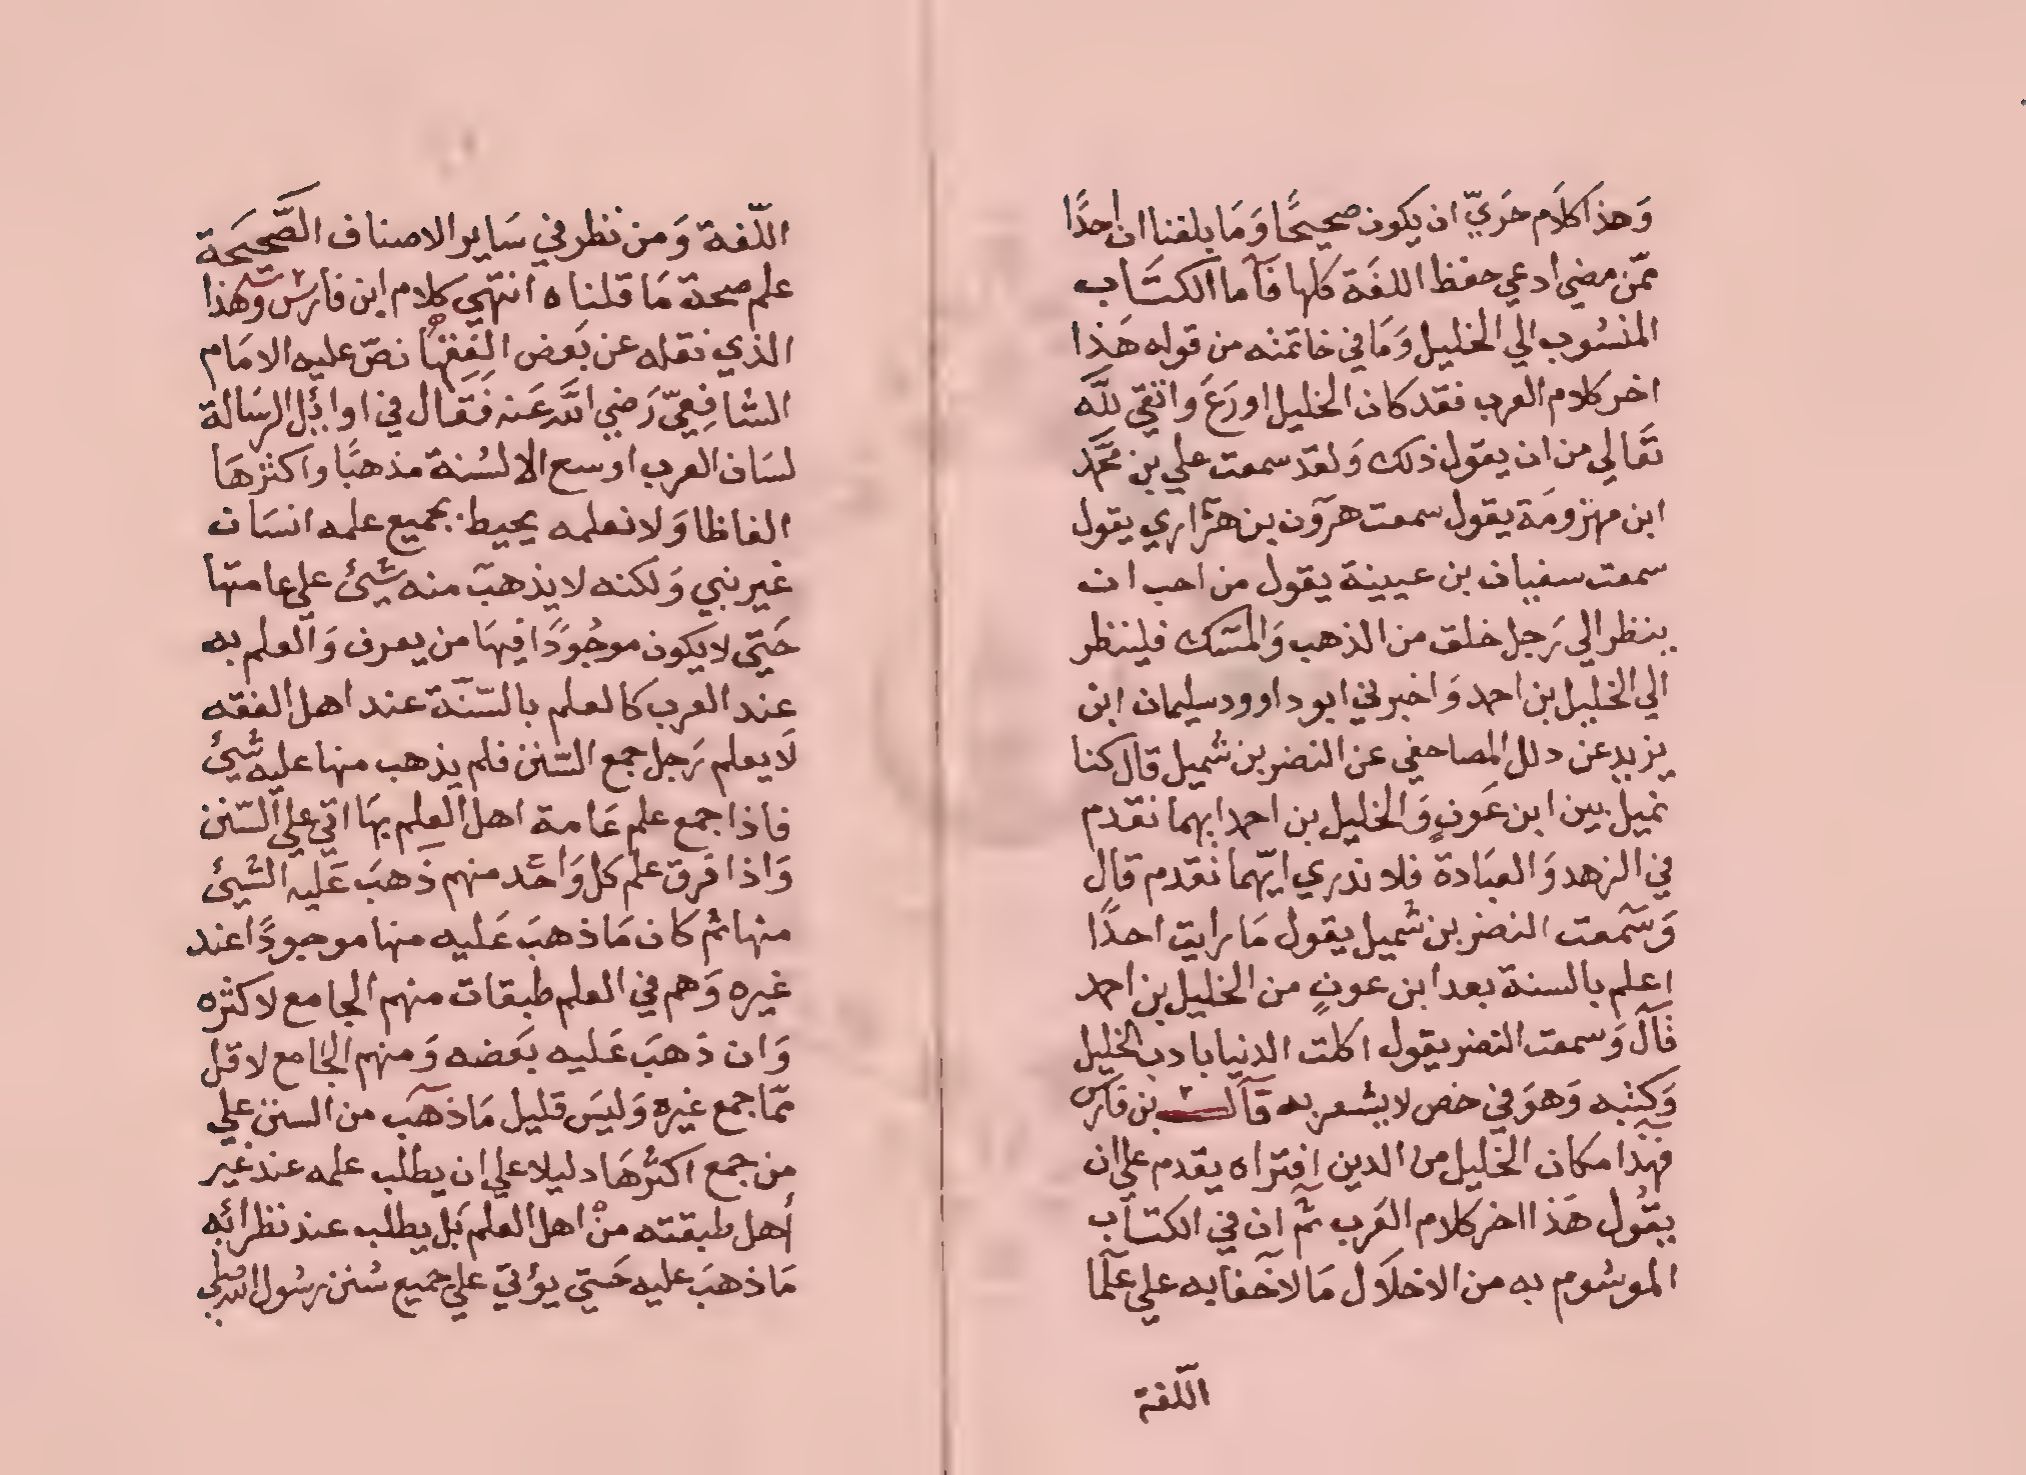 وَهذا كلَام حَريّ ان يكون صحيحًا وَمَا بلغنا ان احدًا
ممّن مضي ادعي حفظ اللغَة كلها فَاَما الكتَاب
المنسُوب الي الخليل وَمَا في خاتمته من قوله هَذا
اخر كلام العرب فقد كان الخليل اورَعَ واتقي للَّه
تعَالي من ان يقول ذلك وَلقد سمعت علي بن محَمَّد
ابن مهزومَة يقول سمعت هروَن بن هزاري يقول
سمعت سفيان بن عيينة يقول من احب ان
ينظر الي رَجل خلق من الذهب وَالمسك فلينظر
الي الخليل بن احمد وَاخبرني ابو داوود سليمان ابن
يزيد عن دلل المصاحفي عن النضر بن شُميل قال كنا
نميل بين ابن عَونٍ وَالخليل بن احمد ايهما نقدم
في الزهد وَالعبَادة فلا ندري ايّهما نقدم قال
وَسَمعت النضر بن شُميل يقول مَا رايت احدًا
اعلم بالسنة بعد ابن عونٍ من الخليل بن احمد
قَال وَسمعت النضر يقول اكلت الدنيا بادب الخليل
وَكتبه وَهوَ في خص لا يشعر به قَال بن فارس
فهَذا مكان الخَليل من الدين افتراه يقدم علي ان
يقُول هَذا اخر كلام العَرب ثمّ ان في الكتَاب
الموسُوم به من الاخلَال مَا لا خَفا به علي علَما
اللّغة
اللّغة وَمن نظر في سَاير الاصناف الصَّحيحَة
علم صحة مَا قلناه انتهي كلام ابن فارس وَهذا
الذي نقله عن بَعض الفِقهَا نصّ عليه الامَام
الشافِعيّ رَضي اللَّه عَنه فَقَال في اوائل الرسَالة
لسَان العرب اوسع الالسُنة مذهبًا واكثرهَا
الفاظا وَلا نعلمه يحيط بجميع علمه انسَان
غير نبي وَلكنه لا يذهبَ منه شَيئ علي عامتها
حَتي لا يكون موجُودًا فيهَا من يعرف وَالعلم به
عند العرب كالعلم بالسّنَة عند اهل الفقه
لَا يعلم رَجل جمع السّنن فلم يذهب منها عليه شَيئ
فاذا جمع علم عَامة اهل العِلم بهَا اتي علي السّنن
وَاذا فَرق علم كل وَاحد منهم ذَهبَ عَليه الشَيئ
منها ثم كان مَا ذهبَ عَليه منها موجودًا عند
غيره وَهم في العلم طبقات منهم الجامع لاكثره
وَان ذَهبَ عَليه بعَضه وَمنهم الجامع لاقل
ممّا جمع غيره وَليسَ قليل مَا ذهَب من السنن علي
من جمع اكثرهَا دليلا علي ان يطلب علمه عند غير
أهل طبقته من اهل العلم بَل يطلب عند نظرائه
مَا ذهبَ عليه حَتي يؤتي علي جميع سُنن رسُول الله